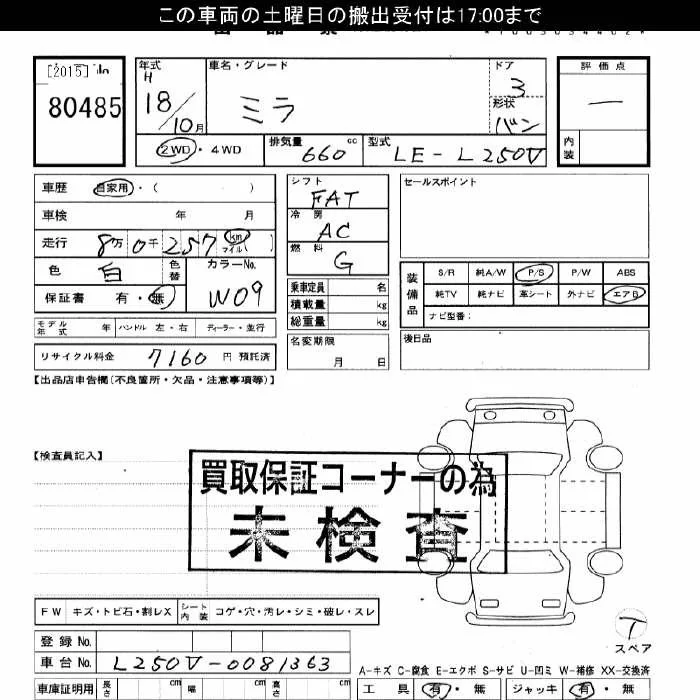 この車両の土曜日の搬出受付は17:00まで
[2015] No
80485
年式
H
18/10月
車名・グレード
ミラ
ドア
3
形状
バン
評価点
—
内装
2WD・4WD
排気量
660cc
型式
LE-L250V
車歴 自家用・( )
シフト
FAT
セールスポイント
車検 年 月
冷房
AC
走行 8万0千257 km マイル ( )
燃料
G
色
白
色替
カラーNo.
W09
保証書 有・無
乗車定員 名
積載量 kg
総重量 kg
装備品
S/R 純A/W P/S P/W ABS
純TV 純ナビ 革シート 外ナビ エアB
ナビ型番:
モデル年式 年 ハンドル 左・右 ディーラー・並行
名変期限
月 日
後日品
リサイクル料金 7160 円 預託済
【出品店申告欄(不良箇所・欠品・注意事項等)】
【検査員記入】
買取保証コーナーの為
未検査
FW キズ・トビ石・割レX シート内装 コゲ・穴・汚レ・シミ・破レ・スレ
T
スペア
登録No.
車台No. L250V-0081363
A-キズ C-腐食 E-エクボ S-サビ U-凹ミ W-補修 XX-交換済
車庫証明用 長さ cm 幅 cm 高さ cm
工具 有・無 ジャッキ 有・無